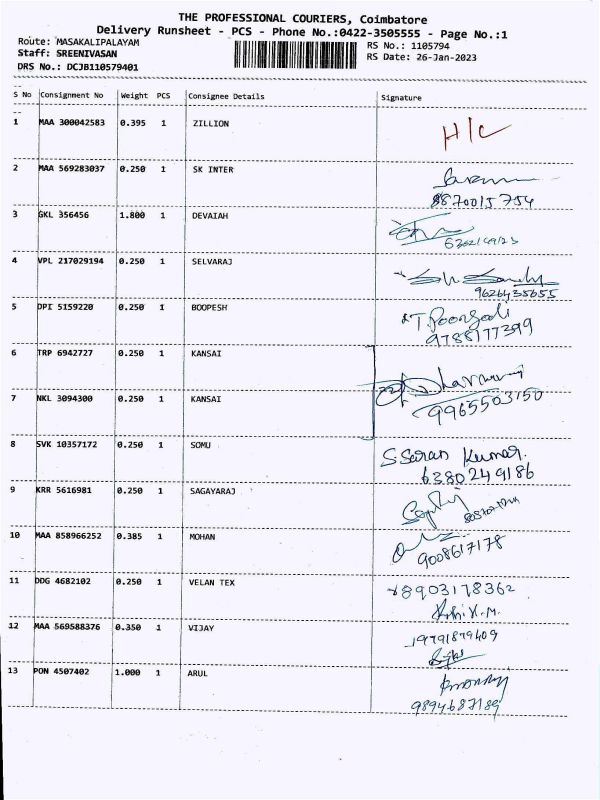 THE PROFESSIONAL COURIERS, Coimbatore
Delivery Runsheet - PCS - Phone No.:0422-3505555 - Page No.:1
Route: MASAKALIPALAYAM
Staff: SREENIVASAN
DRS No.: DCJB110579401
RS No.: 1105794
RS Date: 26-Jan-2023
S No Consignment No Weight PCS Consignee Details Signature
1 MAA 300042583 0.395 1 ZILLION H/C
2 MAA 569283037 0.250 1 SK INTER
8870015754
3 GKL 356456 1.800 1 DEVAIAH
4 VPL 217029194 0.250 1 SELVARAJ
9626435655
5 DPI 5159220 0.250 1 BOOPESH
9788177399
6 TRP 6942727 0.250 1 KANSAI
7 NKL 3094300 0.250 1 KANSAI
9965503150
8 SVK 10357172 0.250 1 SOMU S Saran Kumar.
6380249186
9 KRR 5616981 0.250 1 SAGAYARAJ
10 MAA 858966252 0.385 1 MOHAN
9008617178
11 DDG 4682102 0.250 1 VELAN TEX 8903178362
12 MAA 569588376 0.350 1 VIJAY 19791879409
13 PON 4507402 1.000 1 ARUL
9894687189